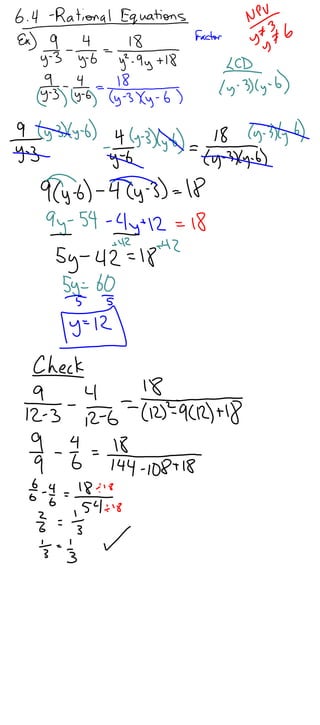 6.4 -Rational Equations
NPV
y≠3
y≠6
Ex) 9/(y-3) - 4/(y-6) = 18/(y²-9y+18)
Factor
LCD
(y-3)(y-6)
9/(y-3) - 4/(y-6) = 18/((y-3)(y-6))
9/(y-3) (y-3)(y-6) - 4/(y-6) (y-3)(y-6) = 18/((y-3)(y-6)) (y-3)(y-6)
9(y-6)-4(y-3)=18
9y-54-4y+12 = 18
+42 +42
5y-42=18
5y=60
5 5
y=12
Check
9/(12-3) - 4/(12-6) = 18/((12)²-9(12)+18)
9/9 - 4/6 = 18/(144-108+18)
6/6 - 4/6 = 18÷18/54÷18
2/6 = 1/3
1/3 = 1/3 ✓